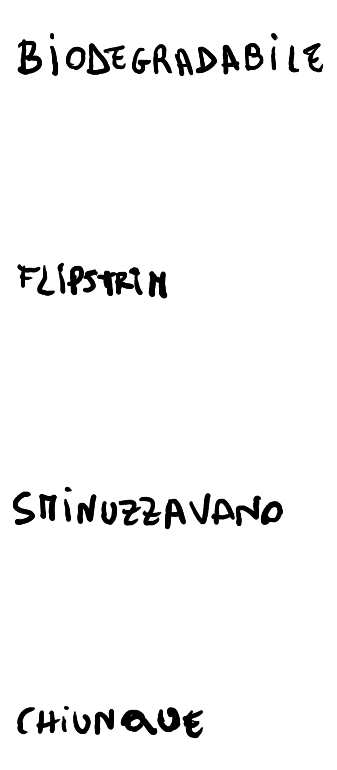 BiODEGRADABiLE
FLiPSTRiN
SMiNUZZAVANO
CHiUNQUE